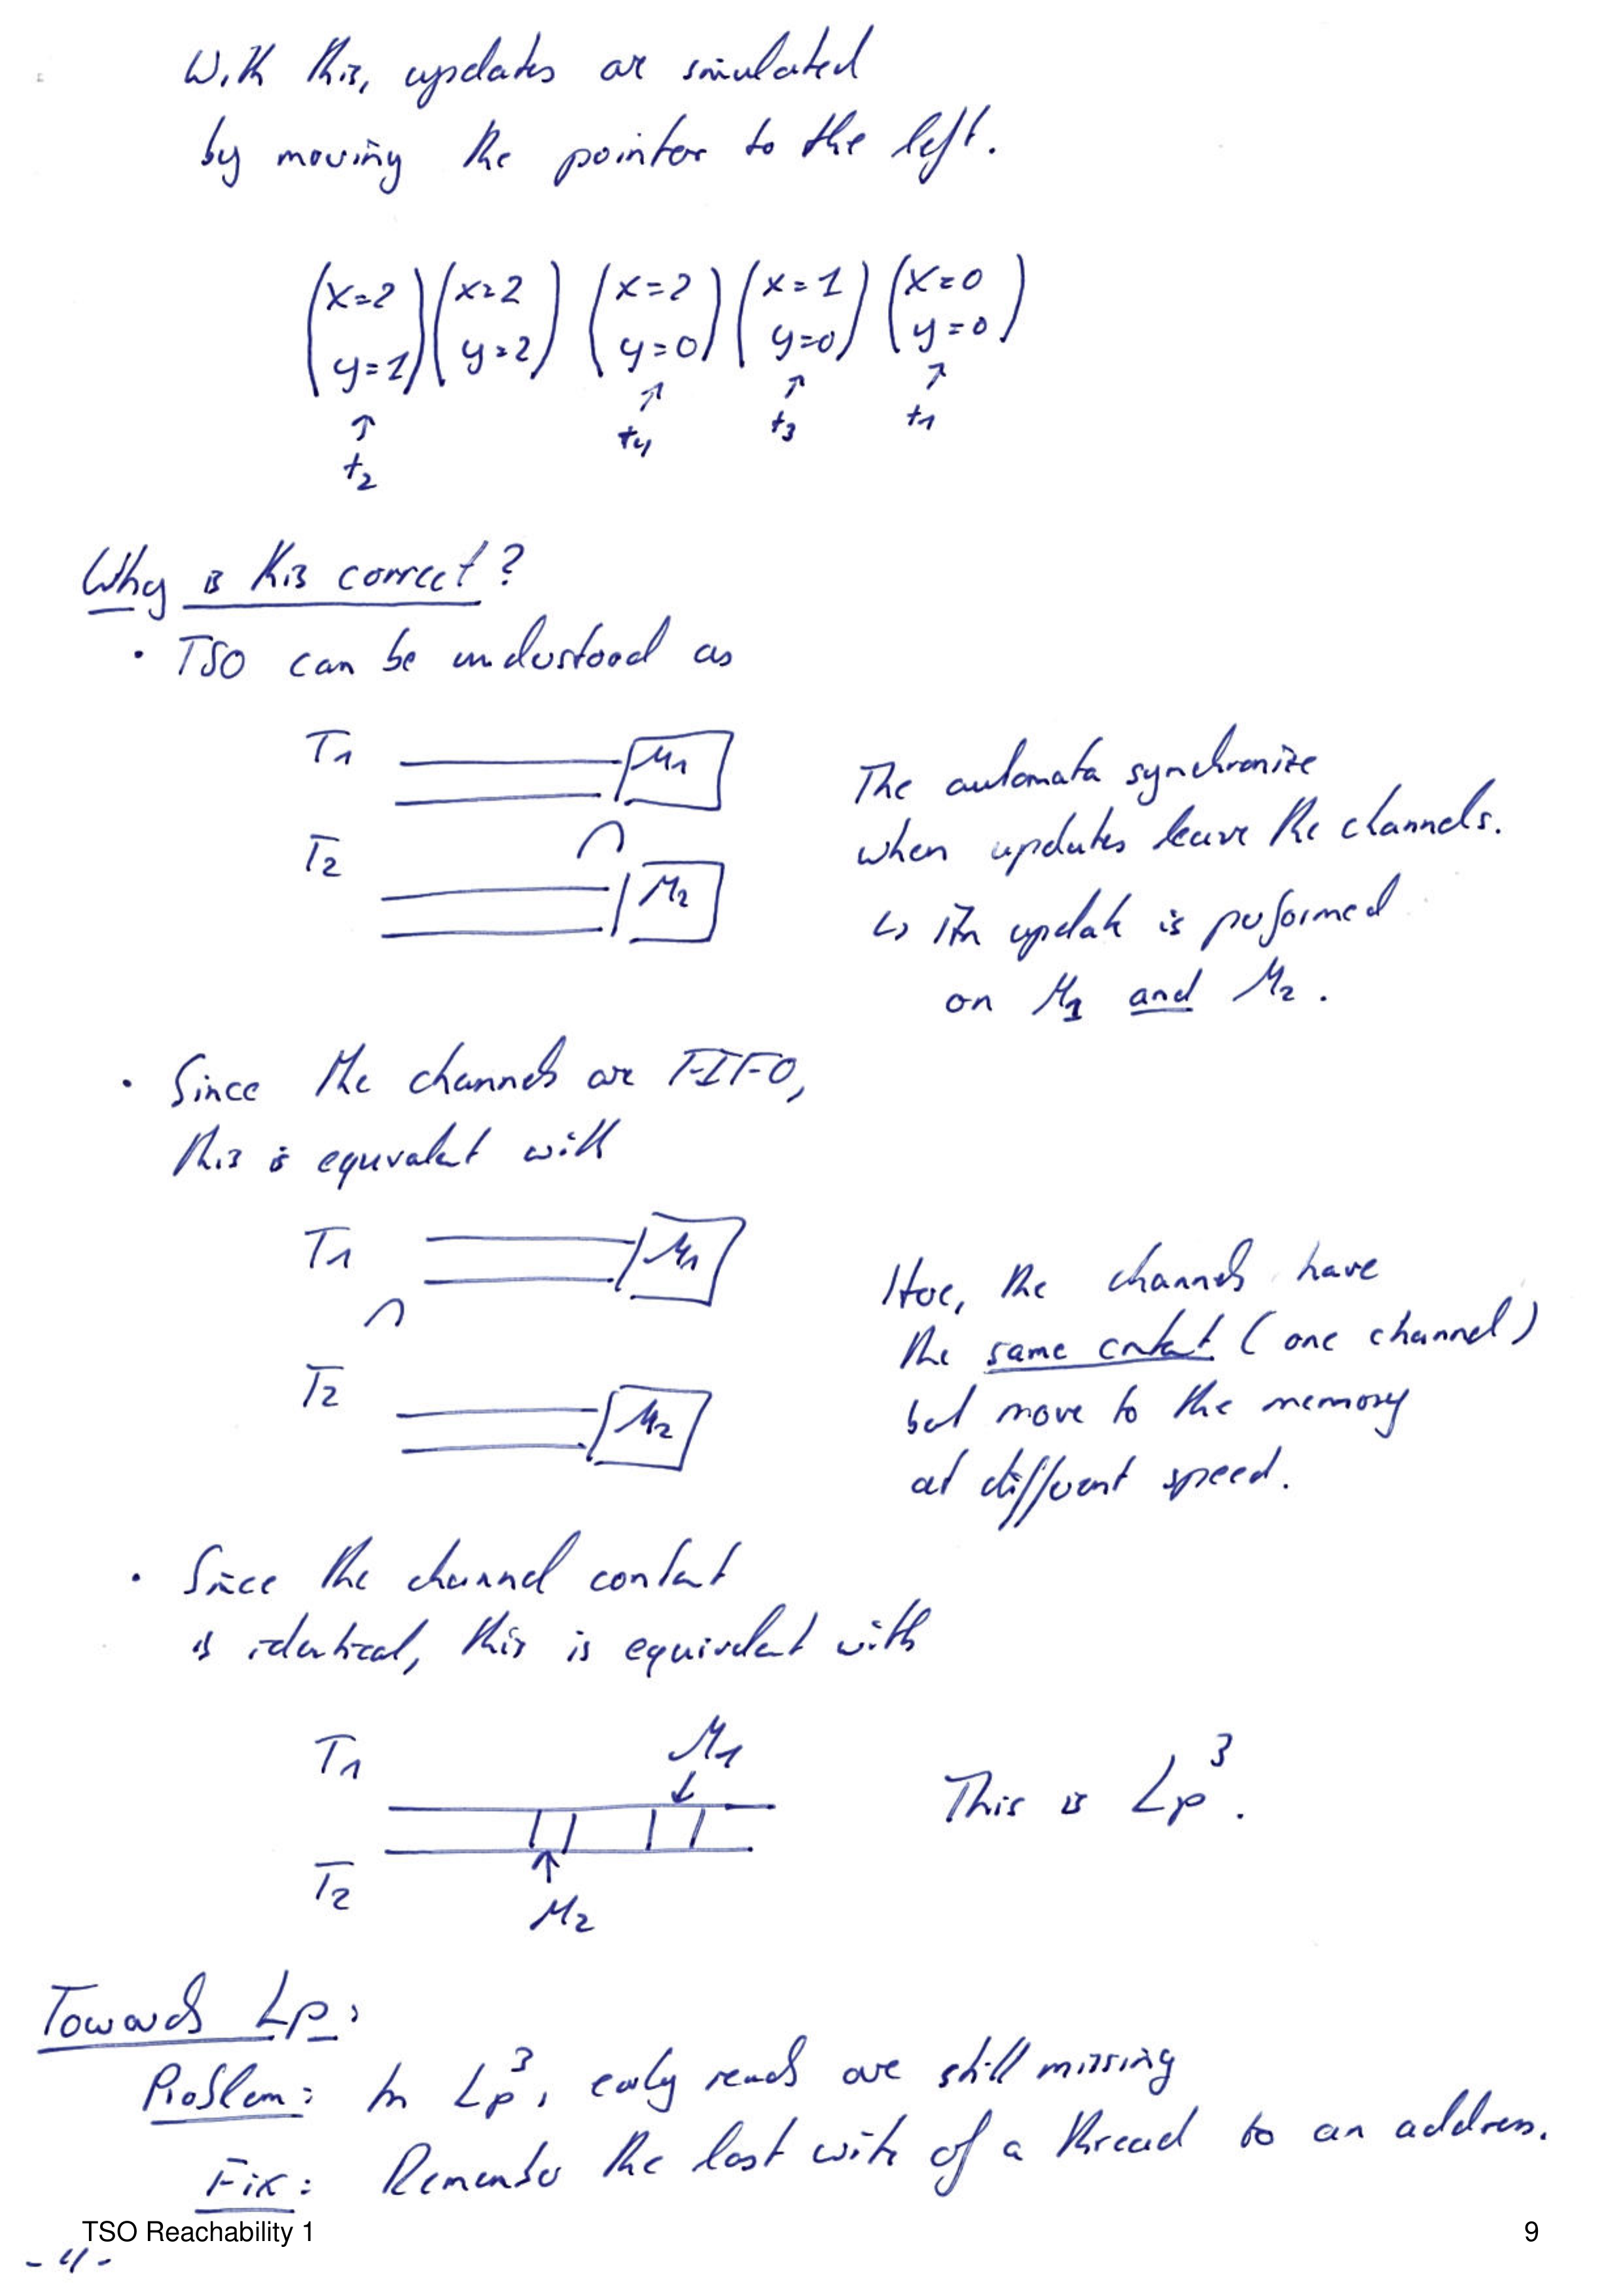 With this, updates are simulated
by moving the pointer to the left.
(x=2 y=1) (x=2 y=2) (x=2 y=0) (x=1 y=0) (x=0 y=0)
↑ t2 ↑ t4 ↑ t3 ↑ t1
Why is this correct?
• TSO can be understood as
T1 M1
The automata synchronize
when updates leave the channels.
T2 M2
↳ update is performed
on M1 and M2.
• Since the channels are FIFO,
this is equivalent with
T1 M1
Here, the channels have
the same content (one channel)
T2 M2
but move to the memory
at different speed.
• Since the channel content
is identical, this is equivalent with
T1 M1
↓
This is Lp³.
T2 ↑
M2
Towards Lp:
Problem: In Lp³, early reads are still missing
Fix: Remember the last write of a thread to an address.
TSO Reachability 1 9
- 4 -